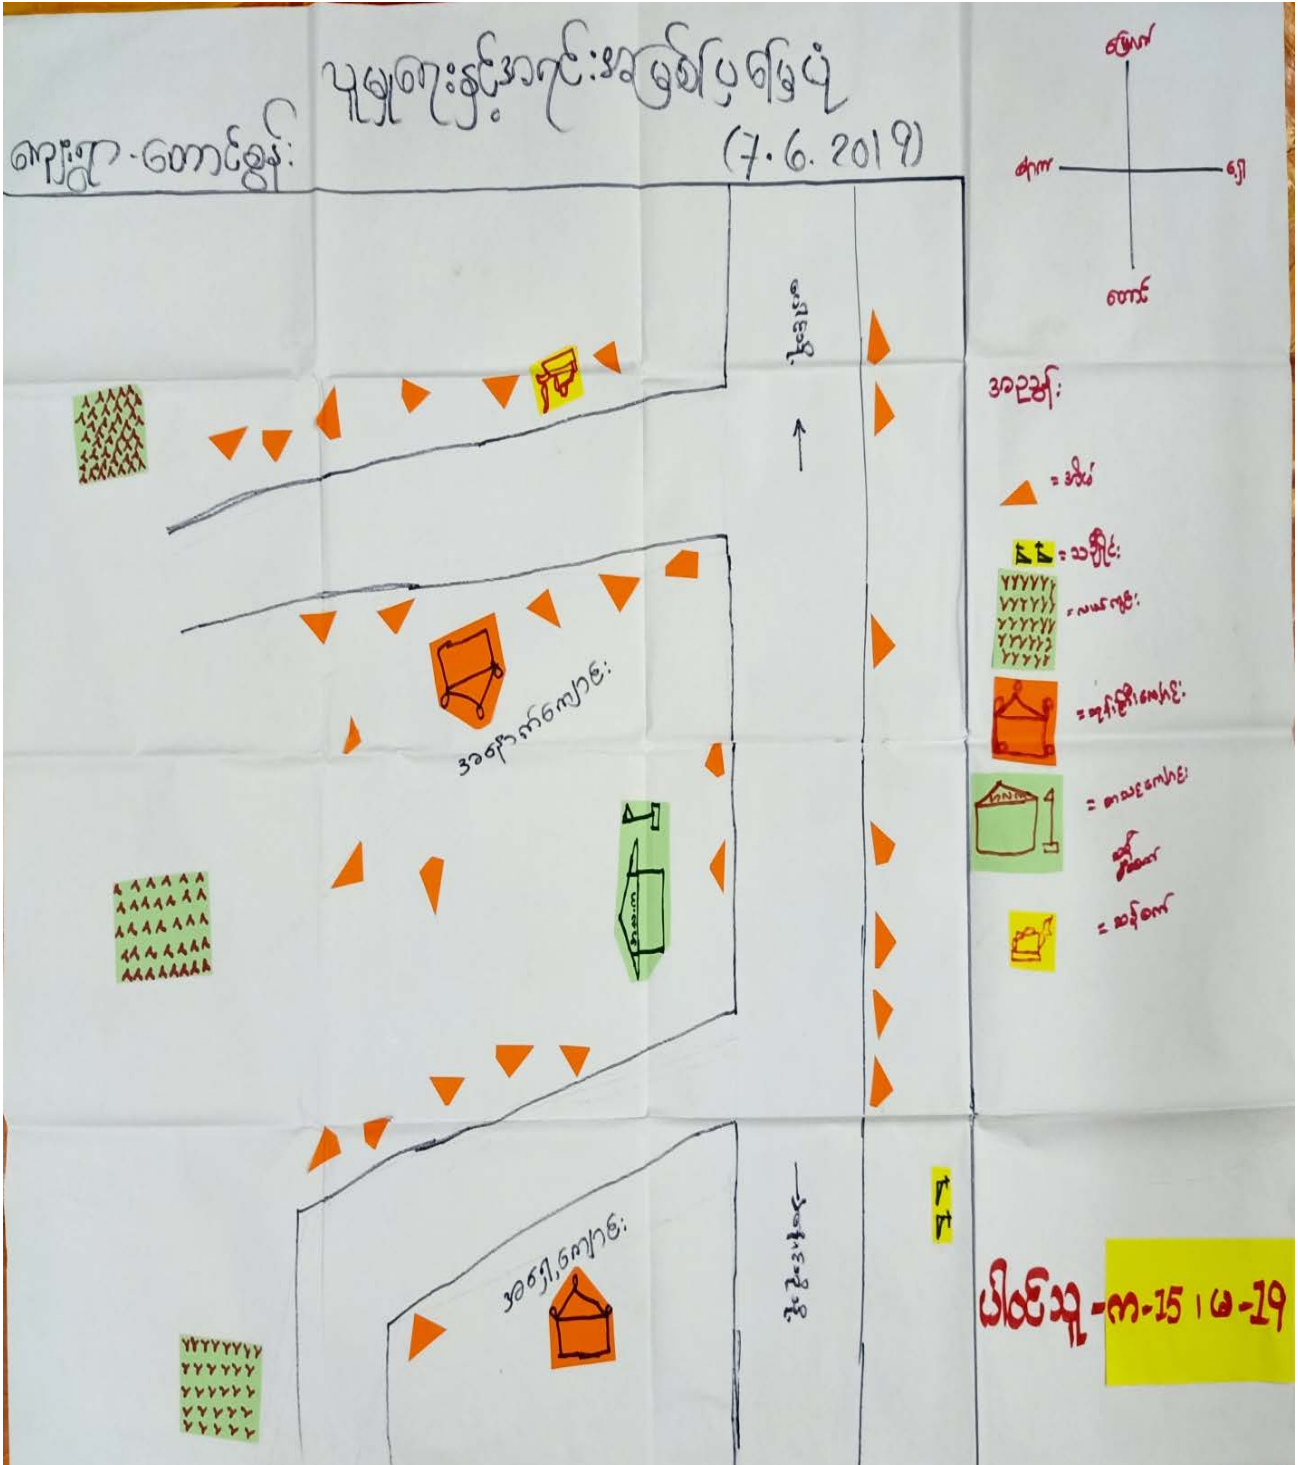 လူမှုရေးနှင့်အရင်းအမြစ်ပြမြေပုံ
ကျေးရွာ-တောင်စွန်း
(7.6.2019)
မြောက်
အရှေ့
တောင်
အညွှန်း
= အိမ်
= သင်္ချိုင်း
= လယ်ကွင်း
= ဘုန်းကြီးကျောင်း
= စာသင်ကျောင်း
= ဆန်စက်
အနောက်ကျောင်း
အရှေ့ကျောင်း
ပါဝင်သူ-က-15၊မ-19